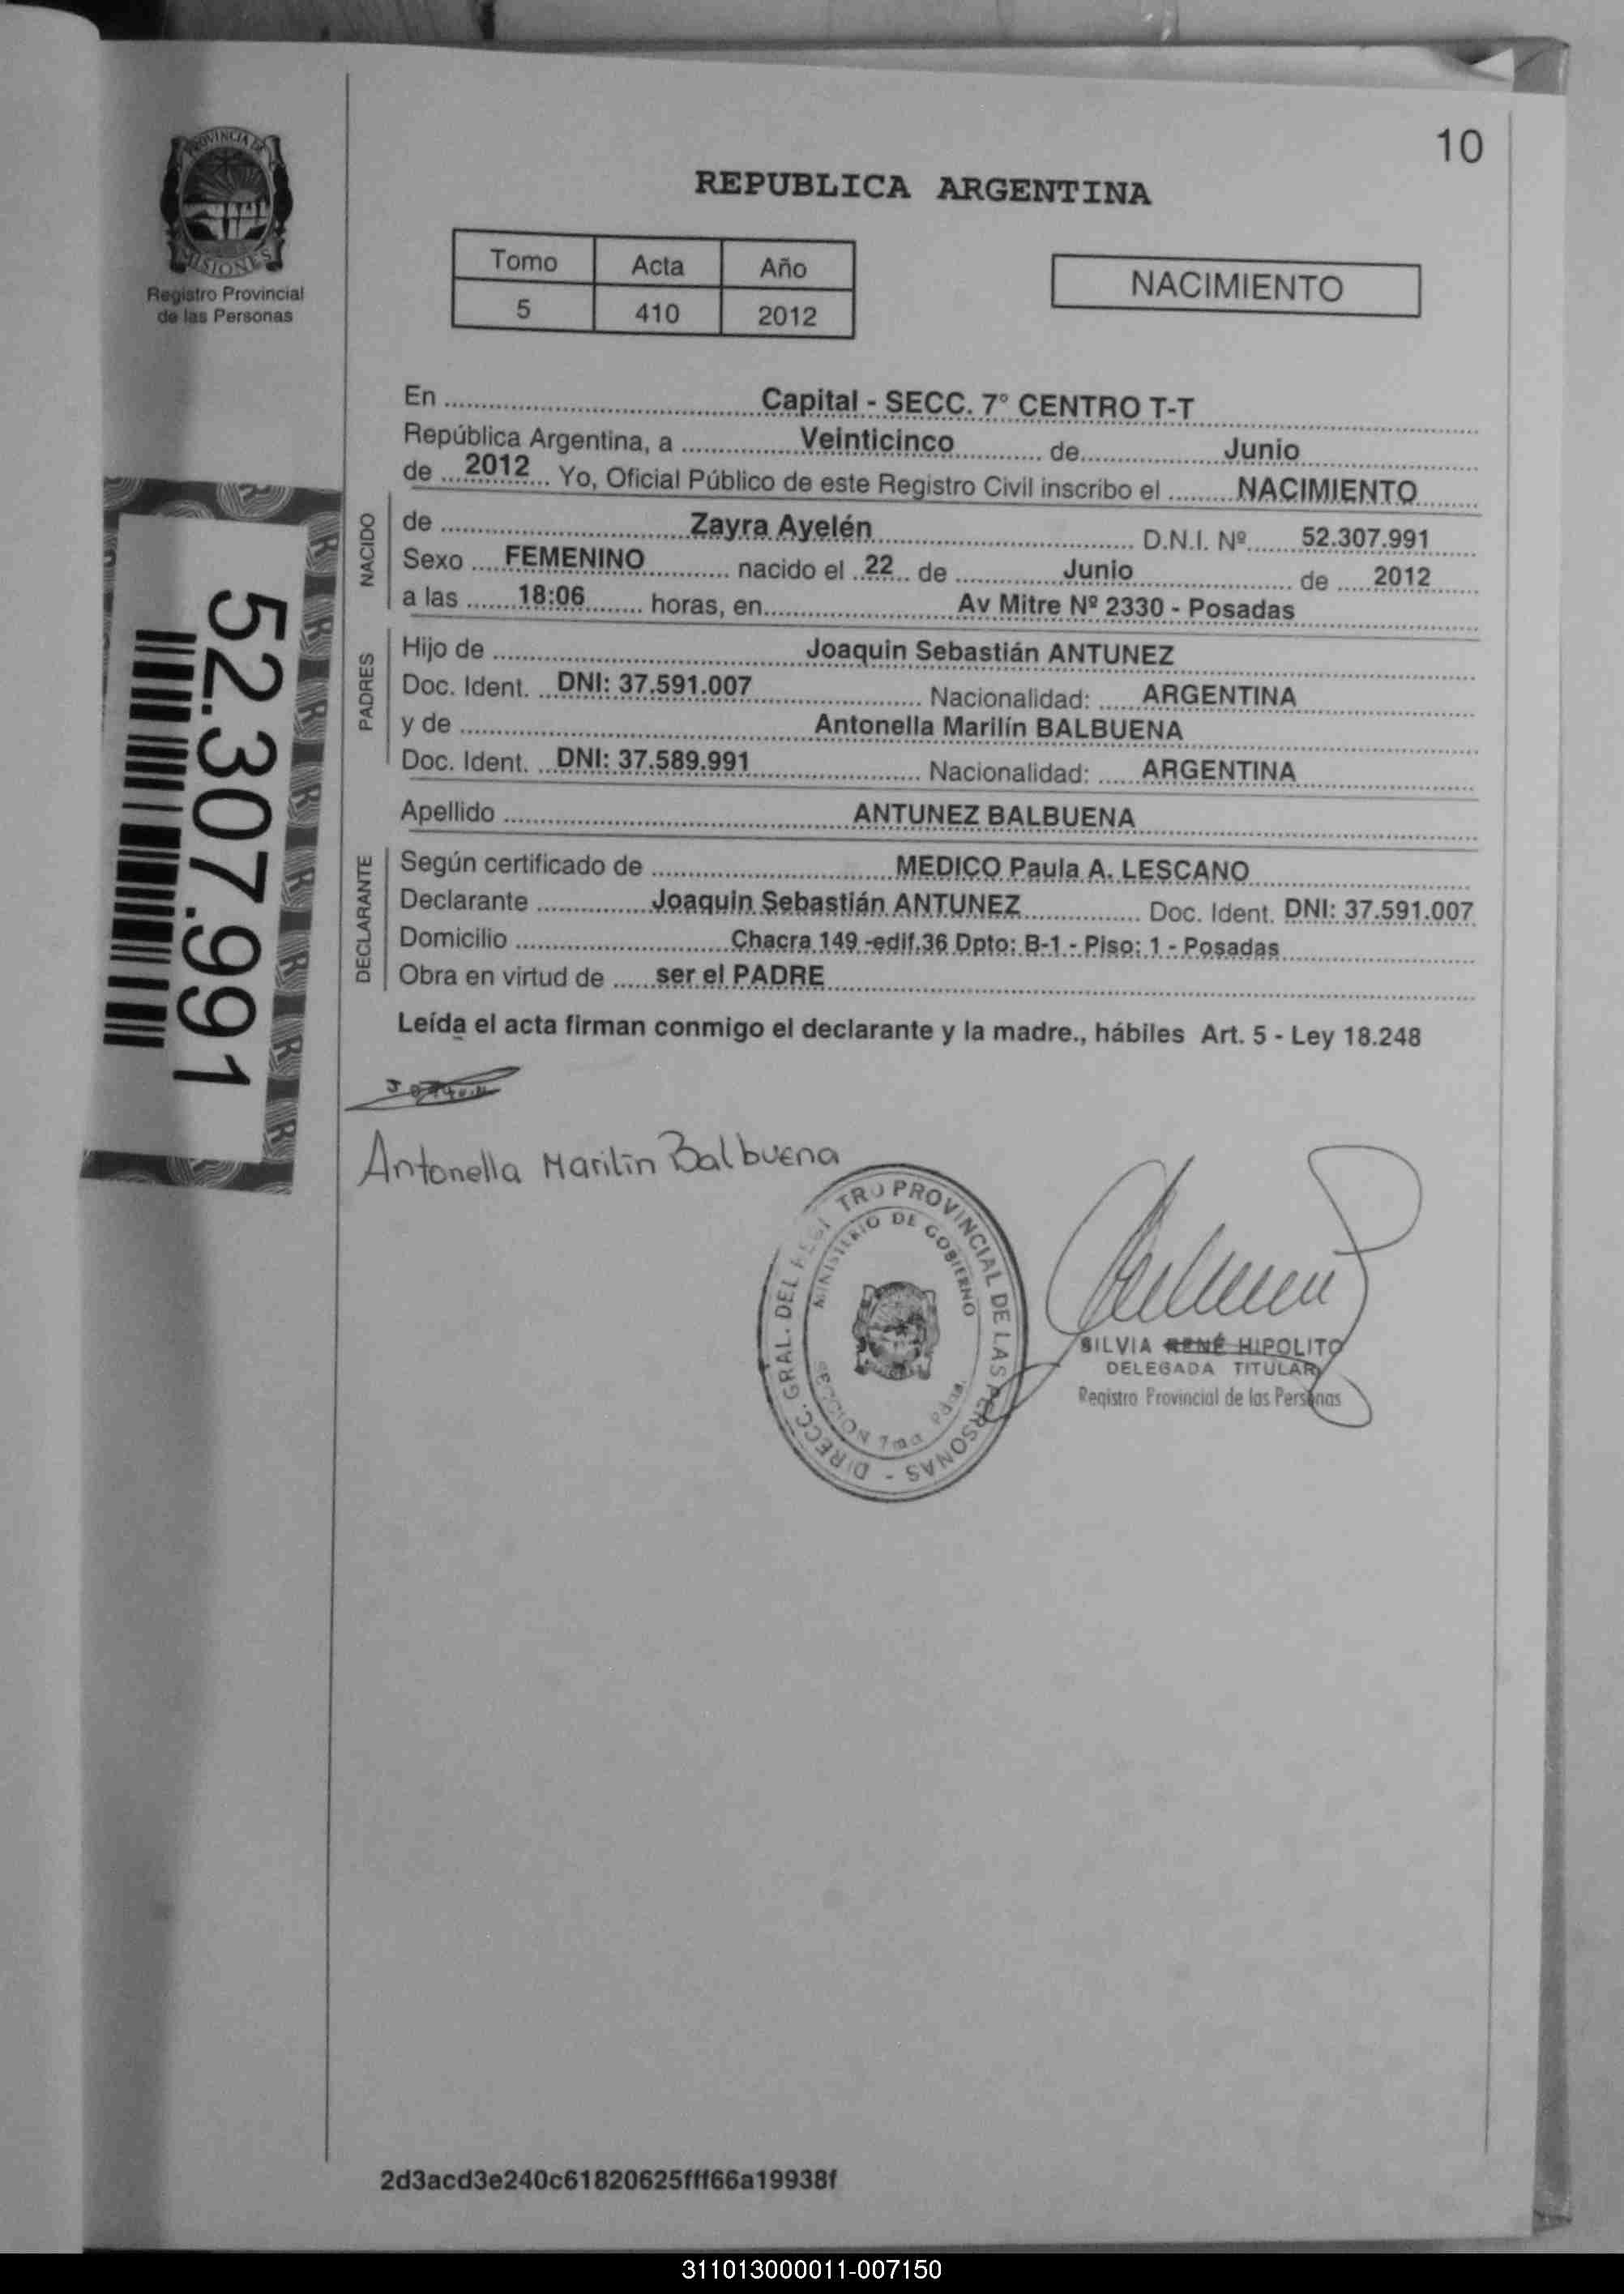 PROVINCIA DE
MISIONES
Registro Provincial
de las Personas
10
REPUBLICA ARGENTINA
Tomo Acta Año
5 410 2012
NACIMIENTO
En Capital - SECC. 7º CENTRO T-T
República Argentina, a Veinticinco de Junio
de 2012 Yo, Oficial Público de este Registro Civil inscribo el NACIMIENTO
NACIDO
de Zayra Ayelén D.N.I. Nº 52.307.991
Sexo FEMENINO nacido el 22 de Junio de 2012
a las 18:06 horas, en Av Mitre Nº 2330 - Posadas
PADRES
Hijo de Joaquin Sebastián ANTUNEZ
Doc. Ident. DNI: 37.591.007 Nacionalidad: ARGENTINA
y de Antonella Marilín BALBUENA
Doc. Ident. DNI: 37.589.991 Nacionalidad: ARGENTINA
Apellido ANTUNEZ BALBUENA
DECLARANTE
Según certificado de MEDICO Paula A. LESCANO
Declarante Joaquin Sebastián ANTUNEZ Doc. Ident. DNI: 37.591.007
Domicilio Chacra 149 -edif.36 Dpto: B-1 - Piso: 1 - Posadas
Obra en virtud de ser el PADRE
Leída el acta firman conmigo el declarante y la madre., hábiles Art. 5 - Ley 18.248
52.307.991
Joaquin
Antonella Marilin Balbuena
DIRECC. GRAL. DEL REGISTRO PROVINCIAL DE LAS PERSONAS -
MINISTERIO DE GOBIERNO
SECCION 7ma Pdas.
SILVIA RENÉ HIPOLITO
DELEGADA TITULAR
Registro Provincial de las Personas
2d3acd3e240c61820625fff66a19938f
311013000011-007150